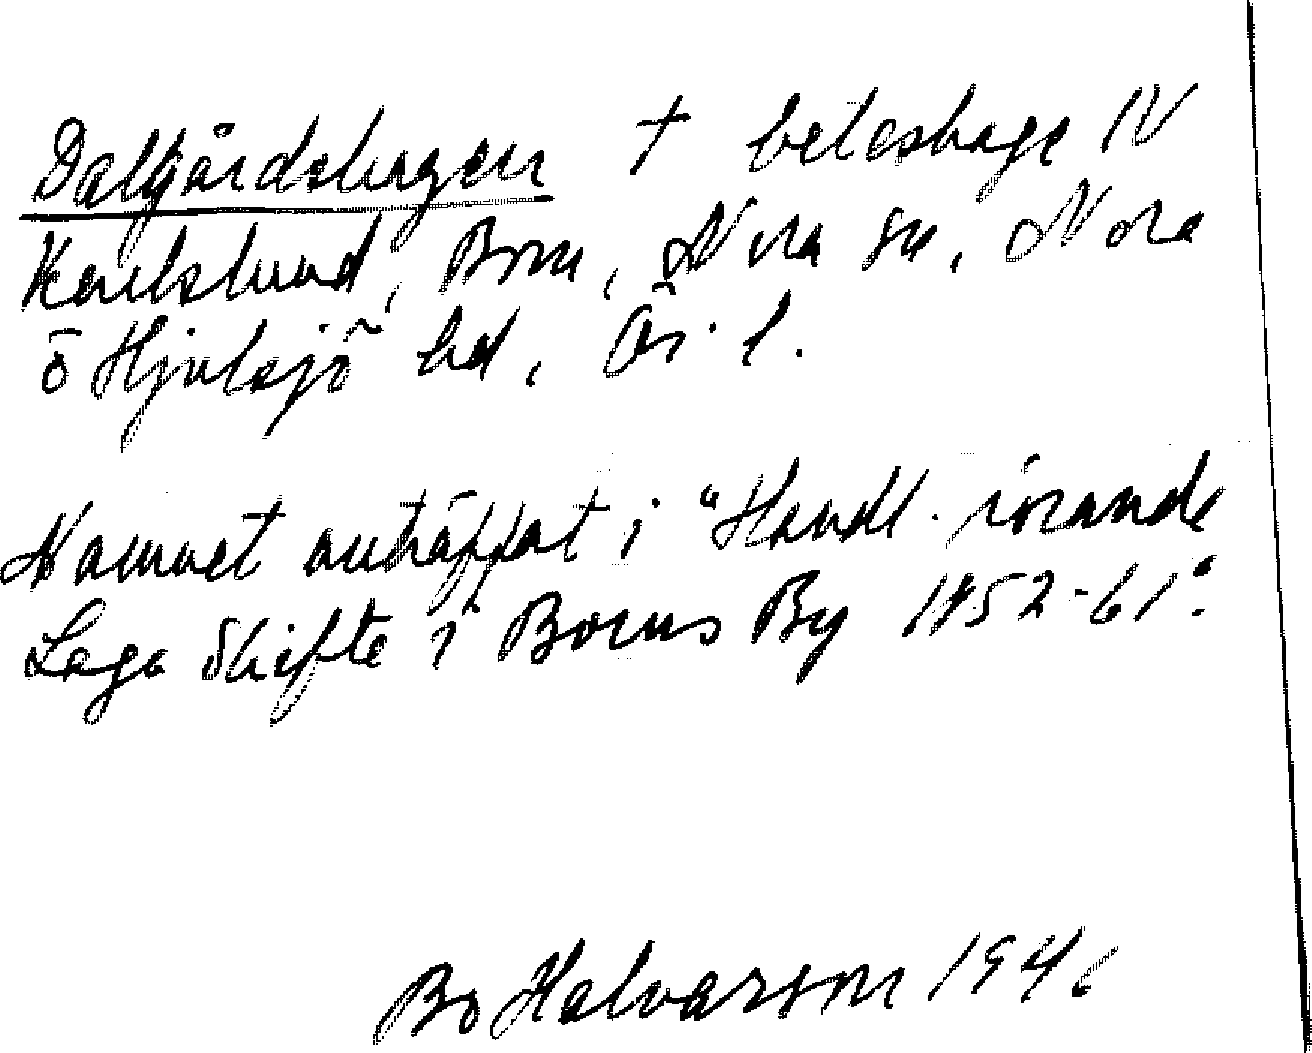 Dalgårdshagen † beteshage NV
Karlslund, Born, Nora sn, Nora
o Hjulsjö hd, Ör. l.
Namnet anträffat i "Handl. rörande
Laga Skifte i Borns By 1852-61".
Bo Halvarson